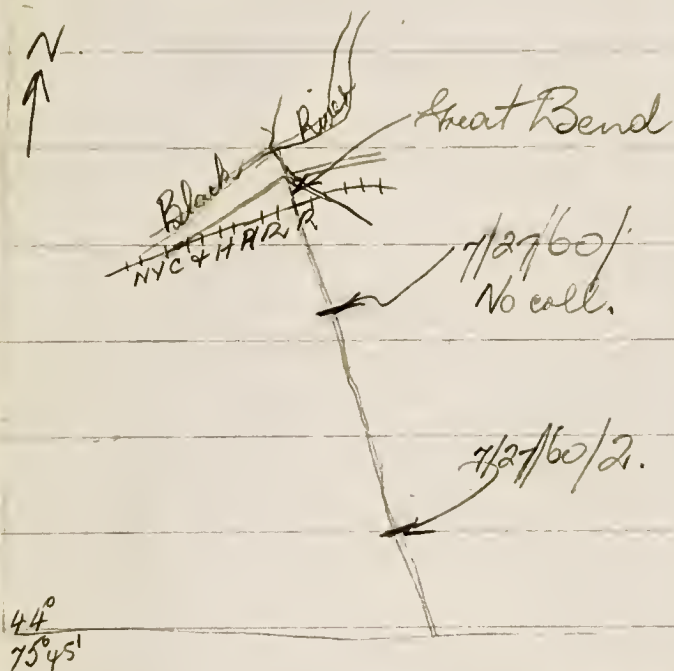 N
Black River
Great Bend
NYC & H R R R
7/27/60/1
No coll.
7/27/60/2.
44°
75°45'